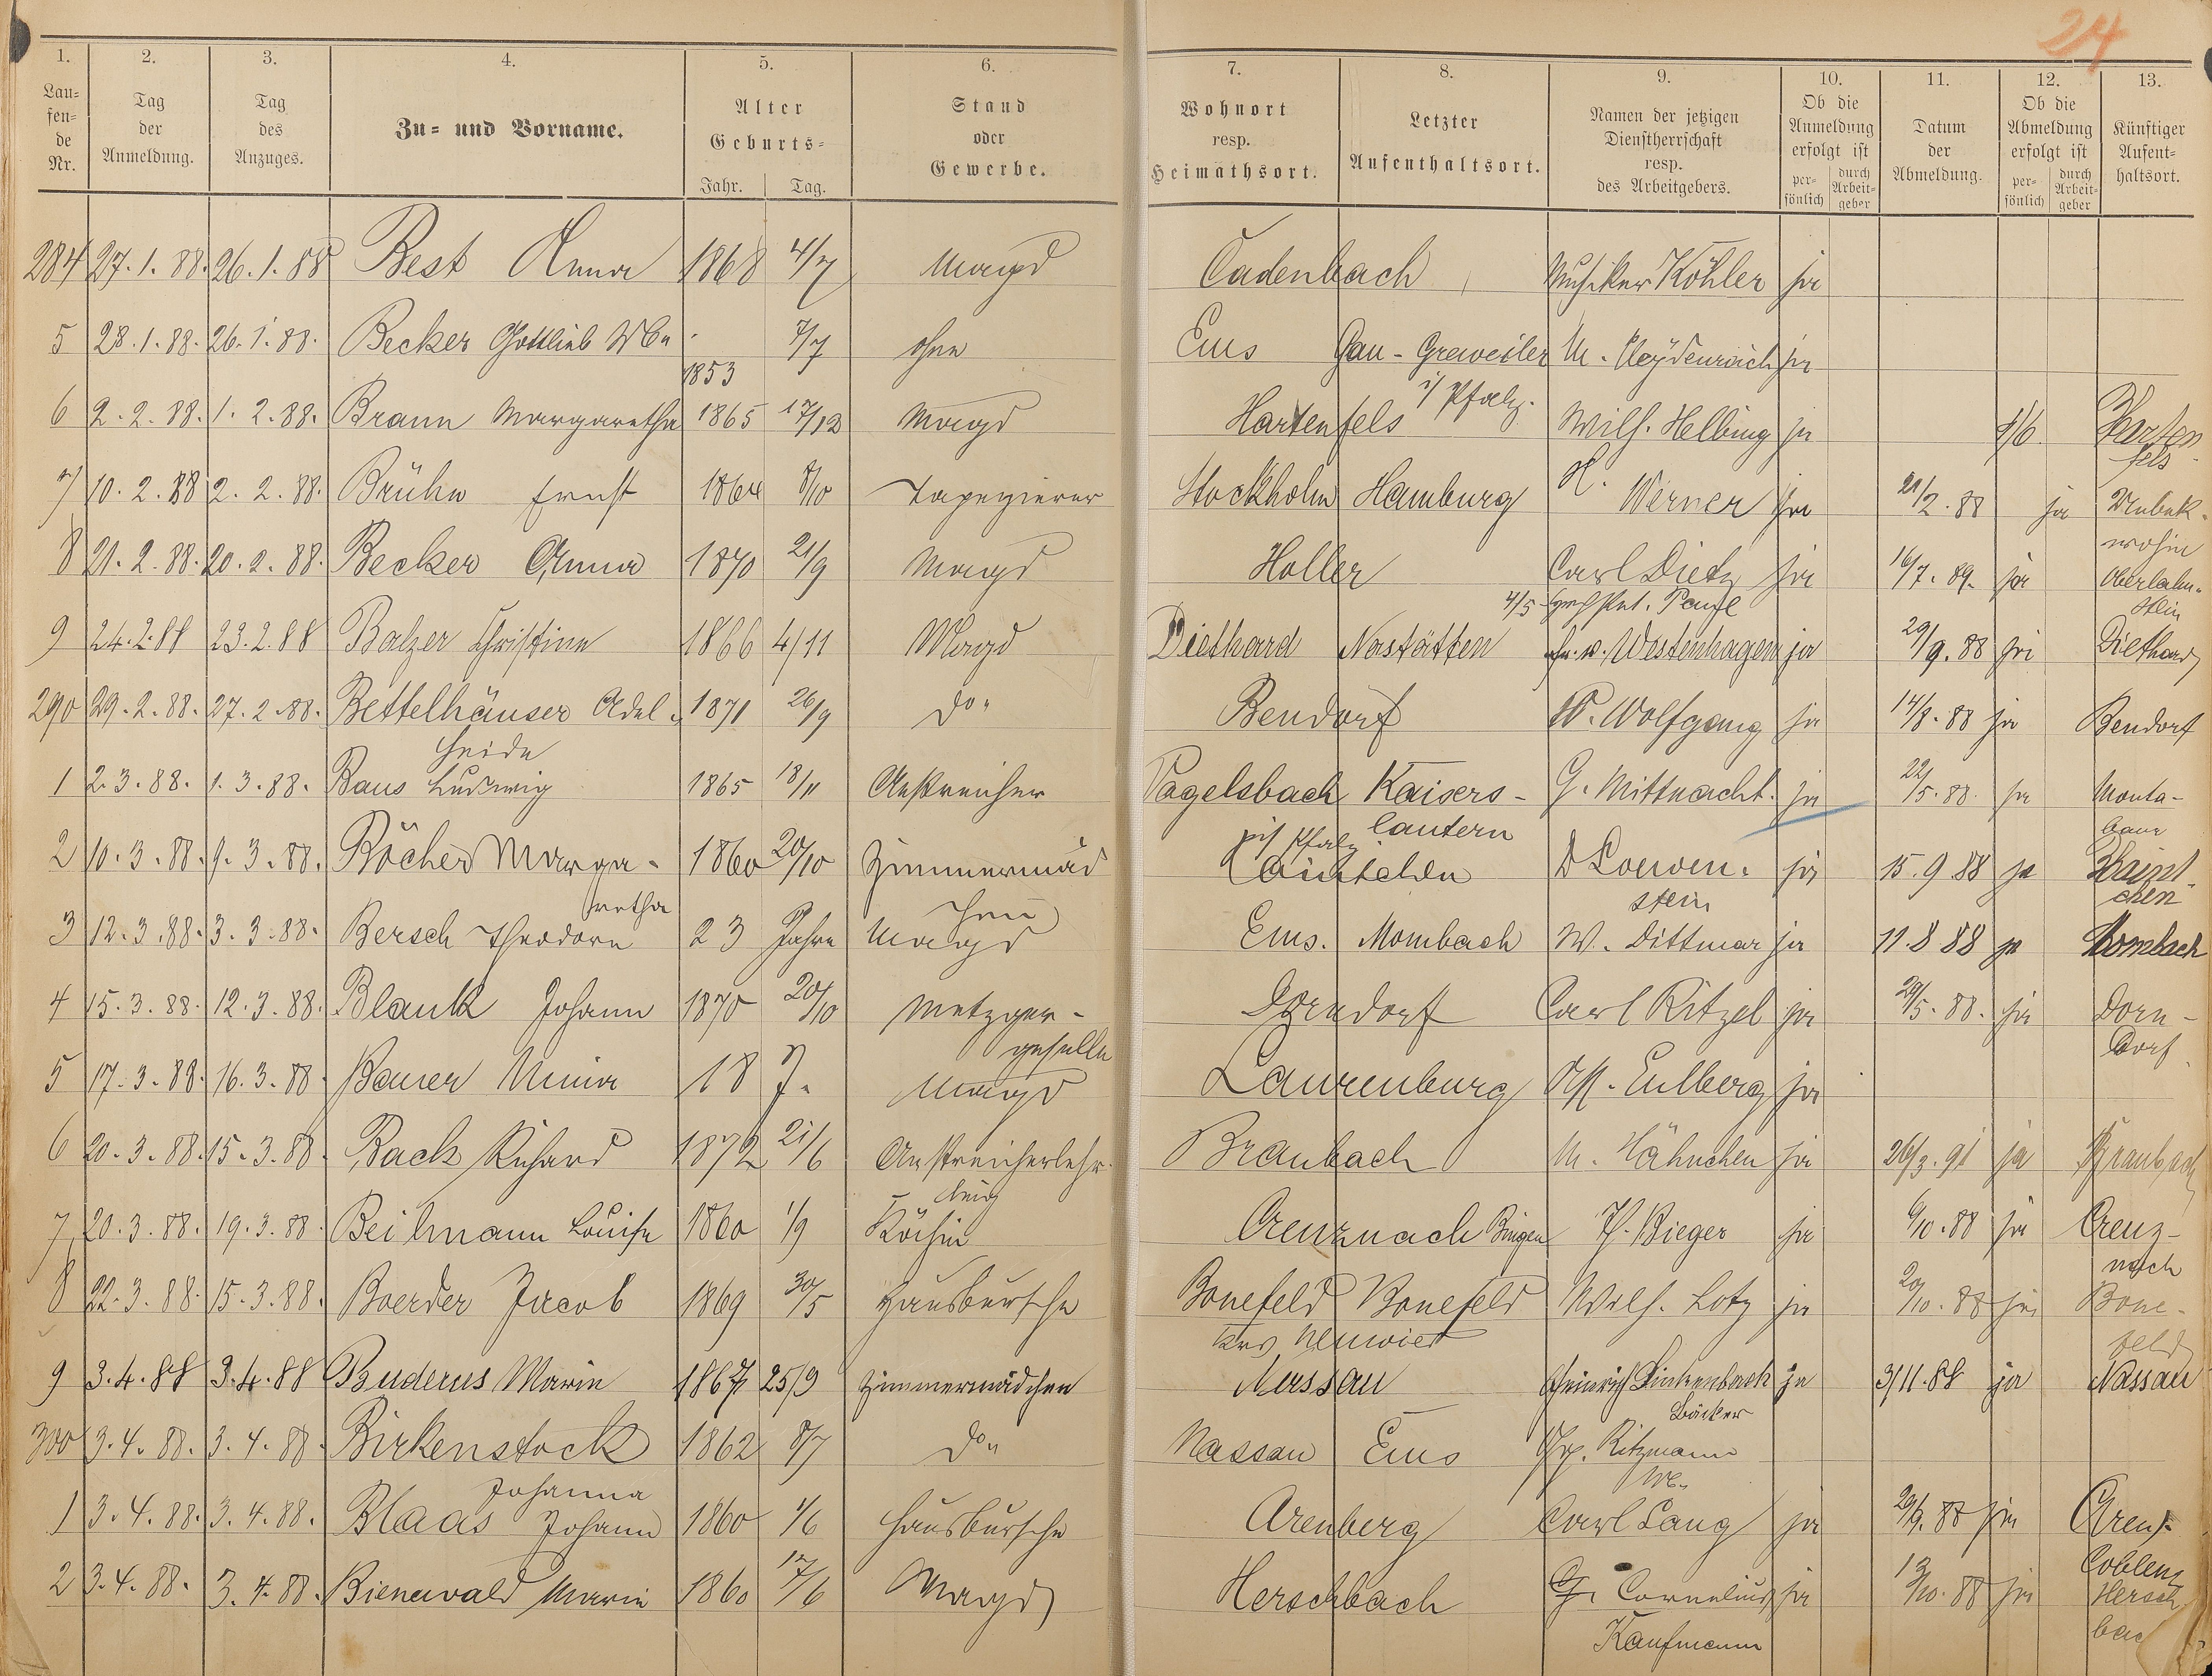 24
1. 2. 3. 4. 5. 6. 7. 8. 9. 10. 11. 12. 13.
Lau=
fen=
de
Nr.
Tag
der
Anmeldung.
Tag
des
Anzuges.
Zu= und Vorname.
Alter
Geburts=
Jahr. Tag.
Stand
oder
Gewerbe.
Wohnort
resp.
Heimathsort.
Letzter
Aufenthaltsort.
Namen der jetzigen
Dienstherrschaft
resp.
des Arbeitgebers.
Ob die
Anmeldung
erfolgt ist
per=
sönlich
durch
Arbeit=
geber
Datum
der
Abmeldung.
Ob die
Abmeldung
erfolgt ist
per=
sönlich
durch
Arbeit=
geber
Künftiger
Aufent=
haltsort.
284 27.1.88. 26.1.88 Best Anna 1868 4/7 Magd Cadenbach Musiker Köhler ja
5 28.1.88. 26.1.88. Becker Gottlieb Wwe 7/7 ohne Ems Gau-Greweiler M. Heydenreich ja
1853 i/Pfalz.
6 2.2.88. 1.2.88. Braun Margaretha 1865 17/12 Magd Hartenfels Wilh. Helbing ja 1/6 Harten
fels
7 10.2.88 2.2.88. Brühn Ernst 1864 8/10 Tapezierer Stockholm Hamburg H. Werner ja 21/2.88 ja Unbek.
wohin
8 21.2.88. 20.2.88. Becker Anna 1870 21/9 Magd Holler Carl Dietz ja 16/7.89. ja Oberlahn-
stein
4/5
9 24.2.88 23.2.88 Balzer Christine 1866 4/11 Magd Diethard Nastätten v. Westenhagen ja 29/9.88 ja Diethard
290 29.2.88. 27.2.88. Bettelhäuser Adel- 1871 26/9 Do. Bendorf W. Wolfgang ja 14/8.88 ja Bendorf
heide
1 2.3.88. 1.3.88. Baus Ludwig 1865 18/11 Anstreicher Vogelsbach Kaisers- G. Mittnacht. ja 22/5.88. ja Monta-
baur
Pfalz lautern
2 10.3.88. 9.3.88. Böcher Marga- 1860 20/10 Zimmermäd D Loewen- ja 15.9 88 ja Haint-
chen
retha chen stein
3 12.3.88. 3.3.88. Bersch Theodore 23 Jahre Magd Ems. Mombach W. Dittmar ja 11.8 88 ja Mombach
4 15.3.88. 12.3.88. Blank Johann 1870 20/10 Metzger- Dorndorf Carl Ritzel ja 29/5.88. ja Dorn-
dorf
geselle
5 17.3.88. 16.3.88. Bauer Mina 18 J. Magd Laurenburg Eulberg ja
6 20.3.88. 15.3.88. Back Richard 1872 21/6 Anstreicherlehr- Braubach M. Hähnchen ja 26/3.91 ja Braubach
ling
7 20.3.88. 19.3.88. Beilmann Louise 1860 1/9 Köchin Creuznach Bingen H. Bieger ja 6/10.88 ja Creuz-
nach
8 22.3.88. 15.3.88. Boerder Jacob 1869 30/5 Hausbursche Bonefeld Bonefeld Wilh. Lotz ja 20/10.88 ja Bone-
feld
Krs Neuwied
9 3.4.88 3.4.88 Buderus Marie 1867 25/9 Zimmermädchen Nassau Heinrich Linkenbach ja 3/11.88 ja Nassau
Bäcker
300 3.4.88. 3.4.88. Birkenstock 1862 8/7 Do. Nassau Ems Ritzmann
Johanna Ww.
1 3.4.88. 3.4.88. Blaas Johann 1860 1/6 Hausbursche Arenberg Carl Lang ja 29/9.88 ja
Coblenz
2 3.4.88. 3.4.88. Bienewald Marie 1860 17/6 Magd Herschbach G. Cornelius ja 13/10.88 ja Hersch-
bac
Kaufmann